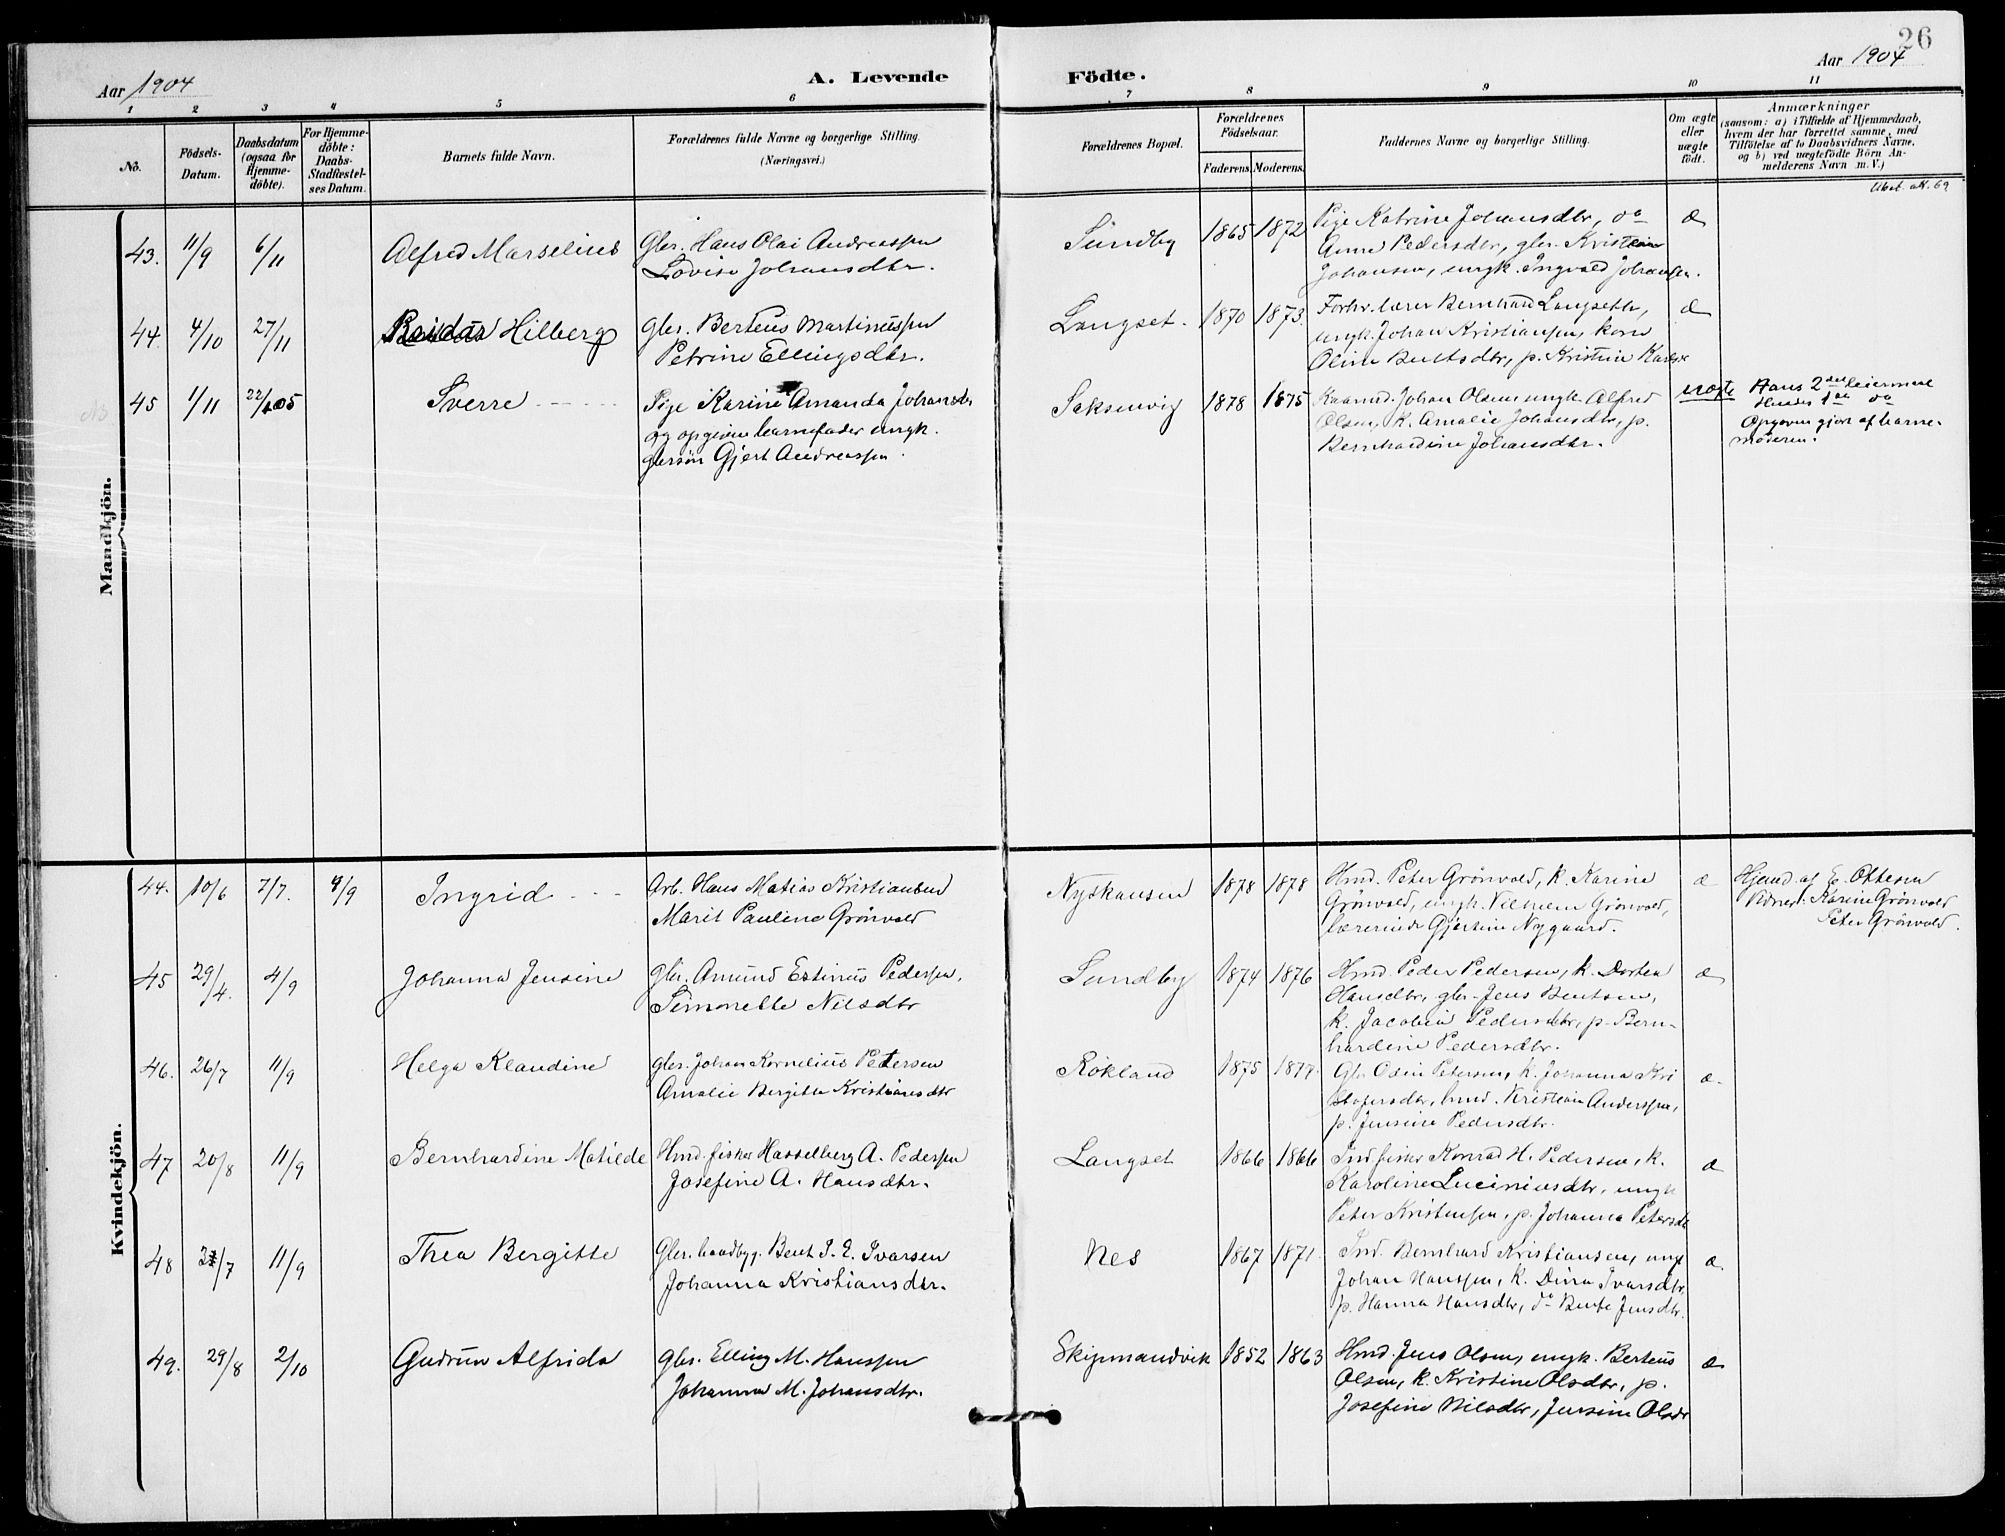 26
Aar 1904
A. Levende
Födte.
Aar 1904
1 2 3 4 5 6 7 8 9 10 11
No.
Födsels-
Datum.
Daabsdatum
(ogsaa for
Hjemme-
döbte).
For Hjemme-
döbte:
Daabs-
Stadfæstel-
ses Datum.
Barnets fulde Navn.
Forældrenes fulde Navne og borgerlige Stilling.
(Næringsvei.)
Forældrenes Bopæl.
Forældrenes
Födselsaar.
Faderens. Moderens.
Faddernes Navne og borgerlige Stilling.
Om ægte
eller
uægte
födt.
Anmærkninger
(saasom: a) i Tilfælde af Hjemmedaab,
hvem der har forrettet samme, med
Tilföielse af to Daabsvidners Navne,
og b) ved uægtefödte Börn An-
melderens Navn m. V.)
Mandkjön.
43. 11/9 6/11 Alfred Marselius
Gbr. Hans Olai Andreassen
Lovise Johansdtr.
Sundby 1865 1872
Pige Katrine Johansdtr, do
Anne Pedersdtr, gbr. Kristian
Johansen, ungk. Ingvald Johansen.
æ
44. 4/10 27/11 Reidar Hilberg
Gbr. Berteus Martinussen
Petrine Ellingsdtr.
Langset. 1870 1873.
Forhv. lærer Bernhard Langseth,
ungk. Johan Kristiansen, kone
Oline Bentsdtr, p. Kristine
æ
45 1/11 22/1 05 Sverre
Pige Karine Amanda Johansdtr
og opgiven barnefader ungk.
gbrsøn Gjert Andreassen.
Saksenvig 1878 1875
Kaarmd. Johan Olsen ungk. Alfred
Olsen, K. Amalie Johansdtr, p.
Bernhardine Johansdtr.
uægte
Hans 2det leiermaal
Hendes 1ste do
Opgaven gjort af barne-
moderen.
Kvindekjön.
44. 10/6 7/7. 4/9 Ingrid
Arb. Hans Matias Kristiansen
Marit Pauline Grönvold
1878 1878
Hmd. Peter Grönvold, k. Karine
Grönvold, ungk. Vilhelm Grönvold,
lærerinde Gjertine Nygaard.
æ
Hjemd. af E. Ottesen
Vidner: Karine Grönvold
Peter Grönvold.
45 29/4. 4/9 Johanna Jensine
Gbr. Amund Estinus Pedersen,
Simonette Nilsdtr
Sundby 1874 1876
Hmd. Peder Pedersen, k. Dortea
Hansdtr, gbr. Jens Bentsen,
k. Jacobine Pedersdtr, p. Bern-
hardine Pedersdtr.
æ
46. 26/7 11/9 Helga Klaudine
Gbr. Johan Kornelius Petersen
Amalie Bergitte Kristiansdtr
Rökland 1875 1877
Gbr Odin Petersen, k. Johanna Kri
stofersdtr, hmd. Kristian Anderssen,
p. Jensine Pedersdtr.
æ
47 20/8 11/9 Bernhardine Matilde
Hmd. fisker Hasselberg A. Pedersen
Josefine A. Hansdtr.
Langset 1866 1866
Ind. fisker Konrad H. Pedersen, k.
Karoline Luciniusdtr, ungk
Peter Kristensen, p. Johanna Petersdtr
æ
48 /7 11/9 Thea Bergitte
Gbr. baadbyg. Bent I. E. Ivarsen
Johanna Kristiansdtr.
Nes 1867 1871
Ind. Bernhard Kristiansen, ungk
Johan Hanssen, k. Dina Ivarsdtr,
p. Hanna Hansdtr, do Berte Jensdtr.
æ
49. 29/8 2/10 Gudrun Alfrida
Gbr. Elling M. Hanssen
Johanna M. Johansdtr.
Skipmandvik 1852 1863
Hmd. Jens Olsen, ungk. Berteus
Olsen, k. Kristine Olsdtr, p.
Josefine Nilsdtr, Jensine Olsdtr
æ